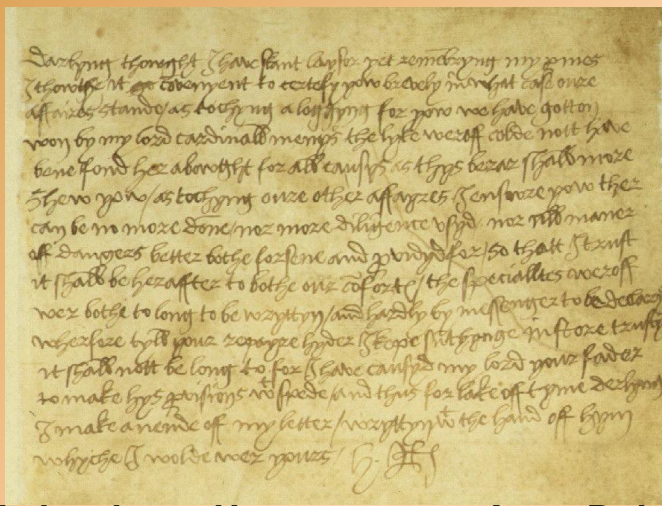 Darlyng thowght I have skant laysor yet remembryng my promes
I thowthe it convenyent to certefy yow brevely in what case oure
affaires stande / as tochyng a loggyng for yow we have gotton
won by my lord cardinalls menys the lyke weroff colde nott have
bene fond her abowght for all causys as thys berar shall more
shew yow / as tochyng oure other affayres I ensure yow ther
can be no more done / nor more diligence usyd nor all maner
off dangers better bothe forsene and provydyd for / so thatt I trust
it shall be heraffter to bothe our comforte / the specialltes weroff
wer bothe to long to be wryttyn / and hardly by messenger to be declaryd
wherfore tyll your repayre hyder I kepe sumthynge in store trustyng
it shall nott be long to for I have causyd my lord your fader
to make hys provisions wt spede / and thus for lake off tyme derlyng
I make an ende off my letter / wryttyn wt the hand off hym
whyche I wolde wer yours H. R